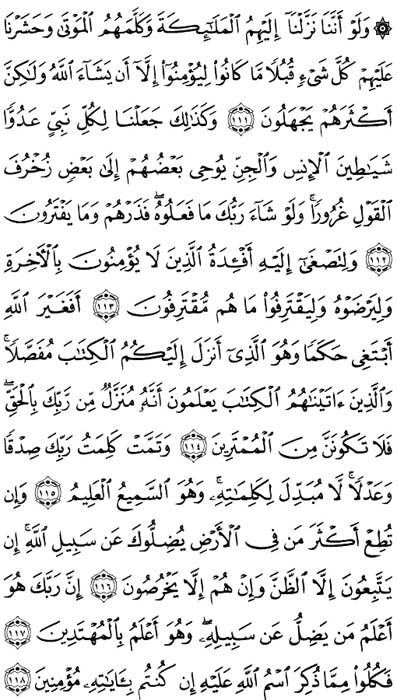 ۞ وَلَوْ أَنَّنَا نَزَّلْنَا إِلَيْهِمُ الْمَلَٰٓئِكَةَ وَكَلَّمَهُمُ الْمَوْتَىٰ وَحَشَرْنَا
عَلَيْهِمْ كُلَّ شَىْءٍ قُبُلًا مَّا كَانُوا۟ لِيُؤْمِنُوٓا۟ إِلَّآ أَن يَشَآءَ اللَّهُ وَلَٰكِنَّ
أَكْثَرَهُمْ يَجْهَلُونَ ١١١ وَكَذَٰلِكَ جَعَلْنَا لِكُلِّ نَبِىٍّ عَدُوًّا
شَيَٰطِينَ الْإِنسِ وَالْجِنِّ يُوحِى بَعْضُهُمْ إِلَىٰ بَعْضٍ زُخْرُفَ
الْقَوْلِ غُرُورًا ۚ وَلَوْ شَآءَ رَبُّكَ مَا فَعَلُوهُ ۖ فَذَرْهُمْ وَمَا يَفْتَرُونَ
١١٢ وَلِتَصْغَىٰٓ إِلَيْهِ أَفْـِٔدَةُ الَّذِينَ لَا يُؤْمِنُونَ بِالْءَاخِرَةِ
وَلِيَرْضَوْهُ وَلِيَقْتَرِفُوا۟ مَا هُم مُّقْتَرِفُونَ ١١٣ أَفَغَيْرَ اللَّهِ
أَبْتَغِى حَكَمًا وَهُوَ الَّذِىٓ أَنزَلَ إِلَيْكُمُ الْكِتَٰبَ مُفَصَّلًا ۚ
وَالَّذِينَ ءَاتَيْنَٰهُمُ الْكِتَٰبَ يَعْلَمُونَ أَنَّهُۥ مُنَزَّلٌ مِّن رَّبِّكَ بِالْحَقِّ ۖ
فَلَا تَكُونَنَّ مِنَ الْمُمْتَرِينَ ١١٤ وَتَمَّتْ كَلِمَتُ رَبِّكَ صِدْقًا
وَعَدْلًا ۚ لَّا مُبَدِّلَ لِكَلِمَٰتِهِۦ ۚ وَهُوَ السَّمِيعُ الْعَلِيمُ ١١٥ وَإِن
تُطِعْ أَكْثَرَ مَن فِى الْأَرْضِ يُضِلُّوكَ عَن سَبِيلِ اللَّهِ ۚ إِن
يَتَّبِعُونَ إِلَّا الظَّنَّ وَإِنْ هُمْ إِلَّا يَخْرُصُونَ ١١٦ إِنَّ رَبَّكَ هُوَ
أَعْلَمُ مَن يَضِلُّ عَن سَبِيلِهِۦ ۖ وَهُوَ أَعْلَمُ بِالْمُهْتَدِينَ ١١٧
فَكُلُوا۟ مِمَّا ذُكِرَ اسْمُ اللَّهِ عَلَيْهِ إِن كُنتُم بِـَٔايَٰتِهِۦ مُؤْمِنِينَ ١١٨